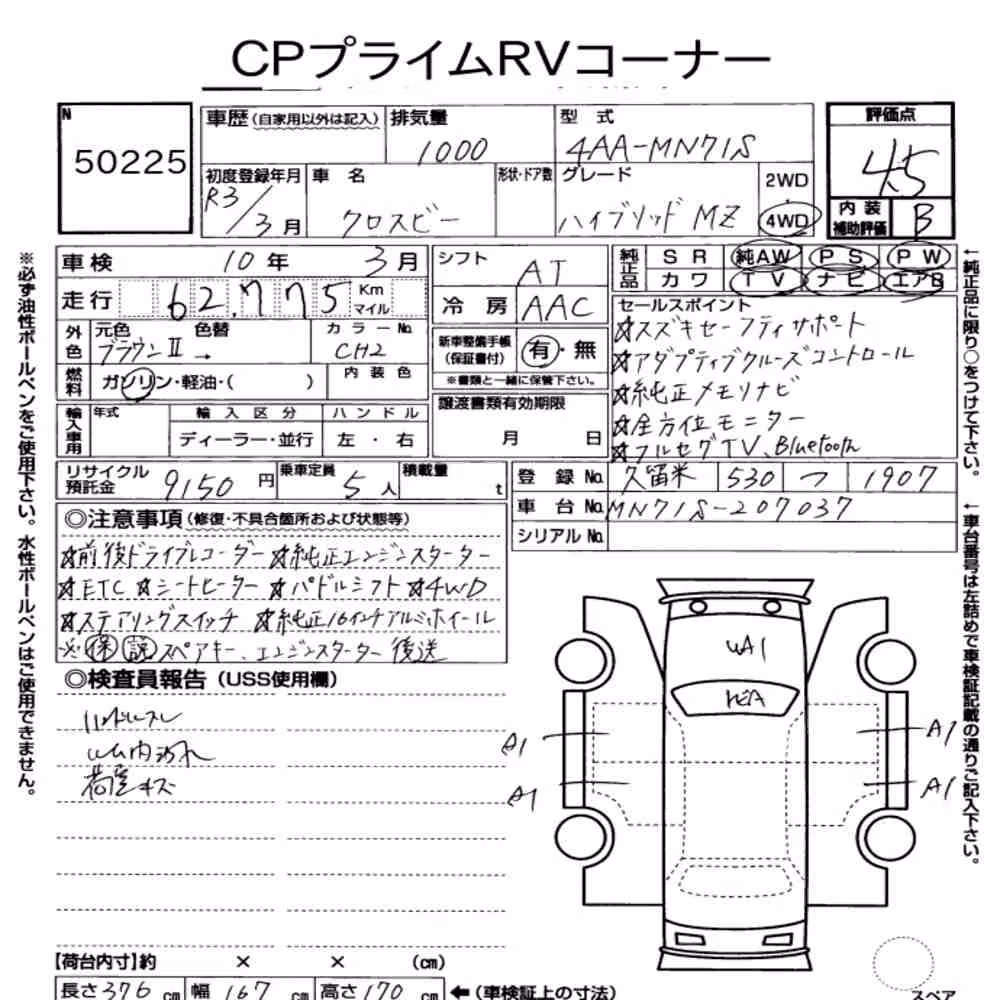 CPプライムRVコーナー
N
50225
車歴(自家用以外は記入)
排気量
1000
型式
4AA-MN71S
評価点
4.5
初度登録年月
R3/3月
車名
クロスビー
形状・ドア数
グレード
ハイブリッド MZ
2WD
4WD
内装補助評価
B
車検 10年 3月
シフト AT
純正品
SR 純AW PS PW
カワ TV ナビ エアB
走行 62,775 Km マイル
冷房 AAC
外色
元色 色替
ブラウンII →
カラーNo.
CH2
新車整備手帳(保証書付)
有・無
※書類と一緒に保管下さい。
燃料
ガソリン・軽油・( )
内装色
輸入車用
年式
輸入区分
ディーラー・並行
ハンドル
左・右
譲渡書類有効期限
月 日
セールスポイント
☆スズキセーフティサポート
☆アダプティブクルーズコントロール
☆純正メモリナビ
☆全方位モニター
☆フルセグTV、Bluetooth
リサイクル預託金 9150円
乗車定員 5人
積載量 t
登録No. 久留米 530 つ 1907
車台No. MN71S-207037
シリアルNo.
◎注意事項(修復・不具合箇所および状態等)
☆前後ドライブレコーダー ☆純正エンジンスターター
☆ETC ☆シートヒーター ☆パドルシフト ☆4WD
☆ステアリングスイッチ ☆純正16インチアルミホイール
※保証 スペアキー、エンジンスターター 後送
◎検査員報告(USS使用欄)
ハンドルスレ
内汚れ
荷室キズ
A1
A1
A1
A1
【荷台内寸】約 × × (cm)
長さ376cm 幅167cm 高さ170cm ←(車検証上の寸法)
スペア
※必ず油性ボールペンをご使用下さい。水性ボールペンはご使用できません。
←純正品に限り○をつけて下さい。
←車台番号は左詰めで車検証記載の通りご記入下さい。